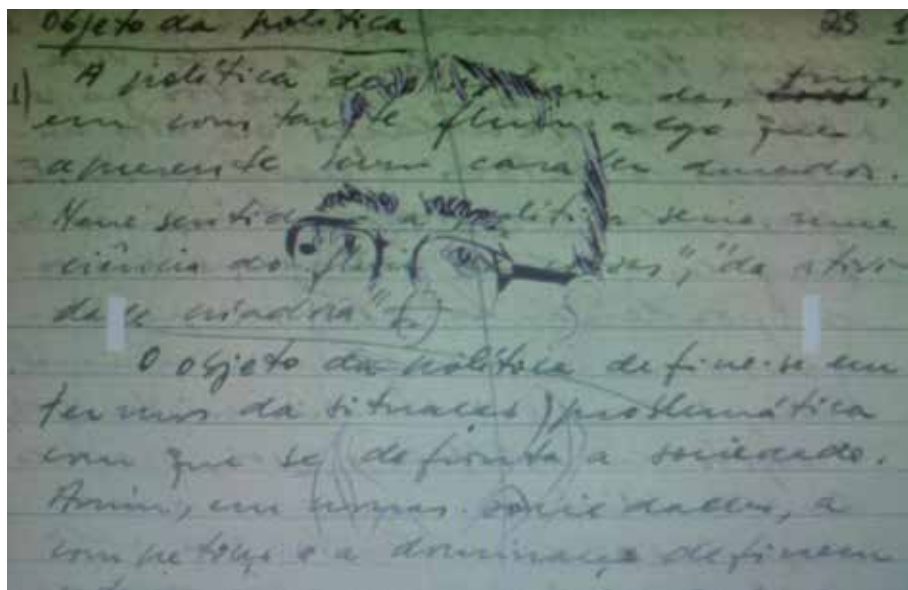 Objeto da política 25 1
1) A política
em constante fluxo algo que
apresente um caráter
Nesse sentido a política seria uma
ciência do "da ativi
dade criadora"
O objeto da política define-se em
termos da situação problemática
com que se defronta a sociedade.
Assim, em nossas sociedades, a
competição e a dominação definem